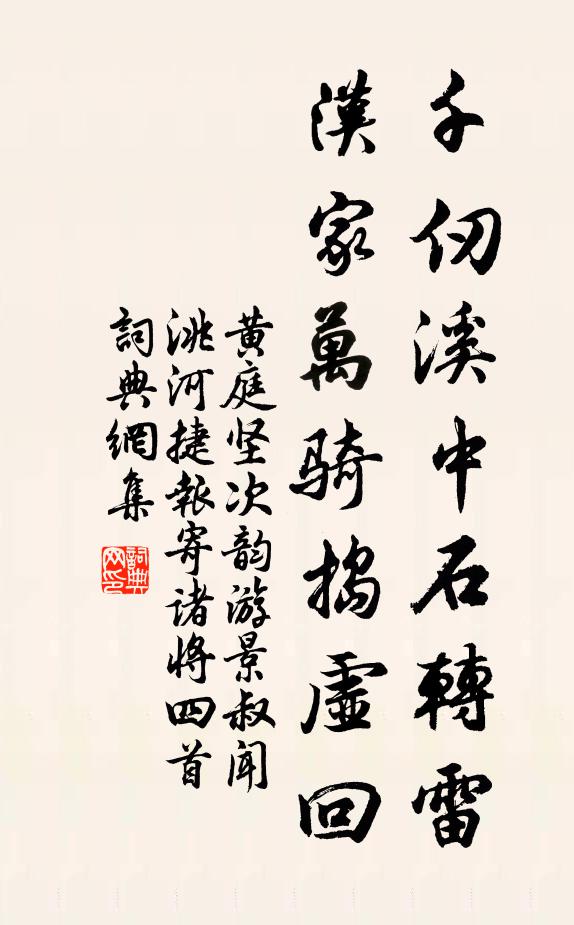 千仞溪中石轉雷
漢家萬騎搗虛回
黃庭坚次韵游景叔闻
洮河捷報寄诸将四首
詞典網集
詞典网印